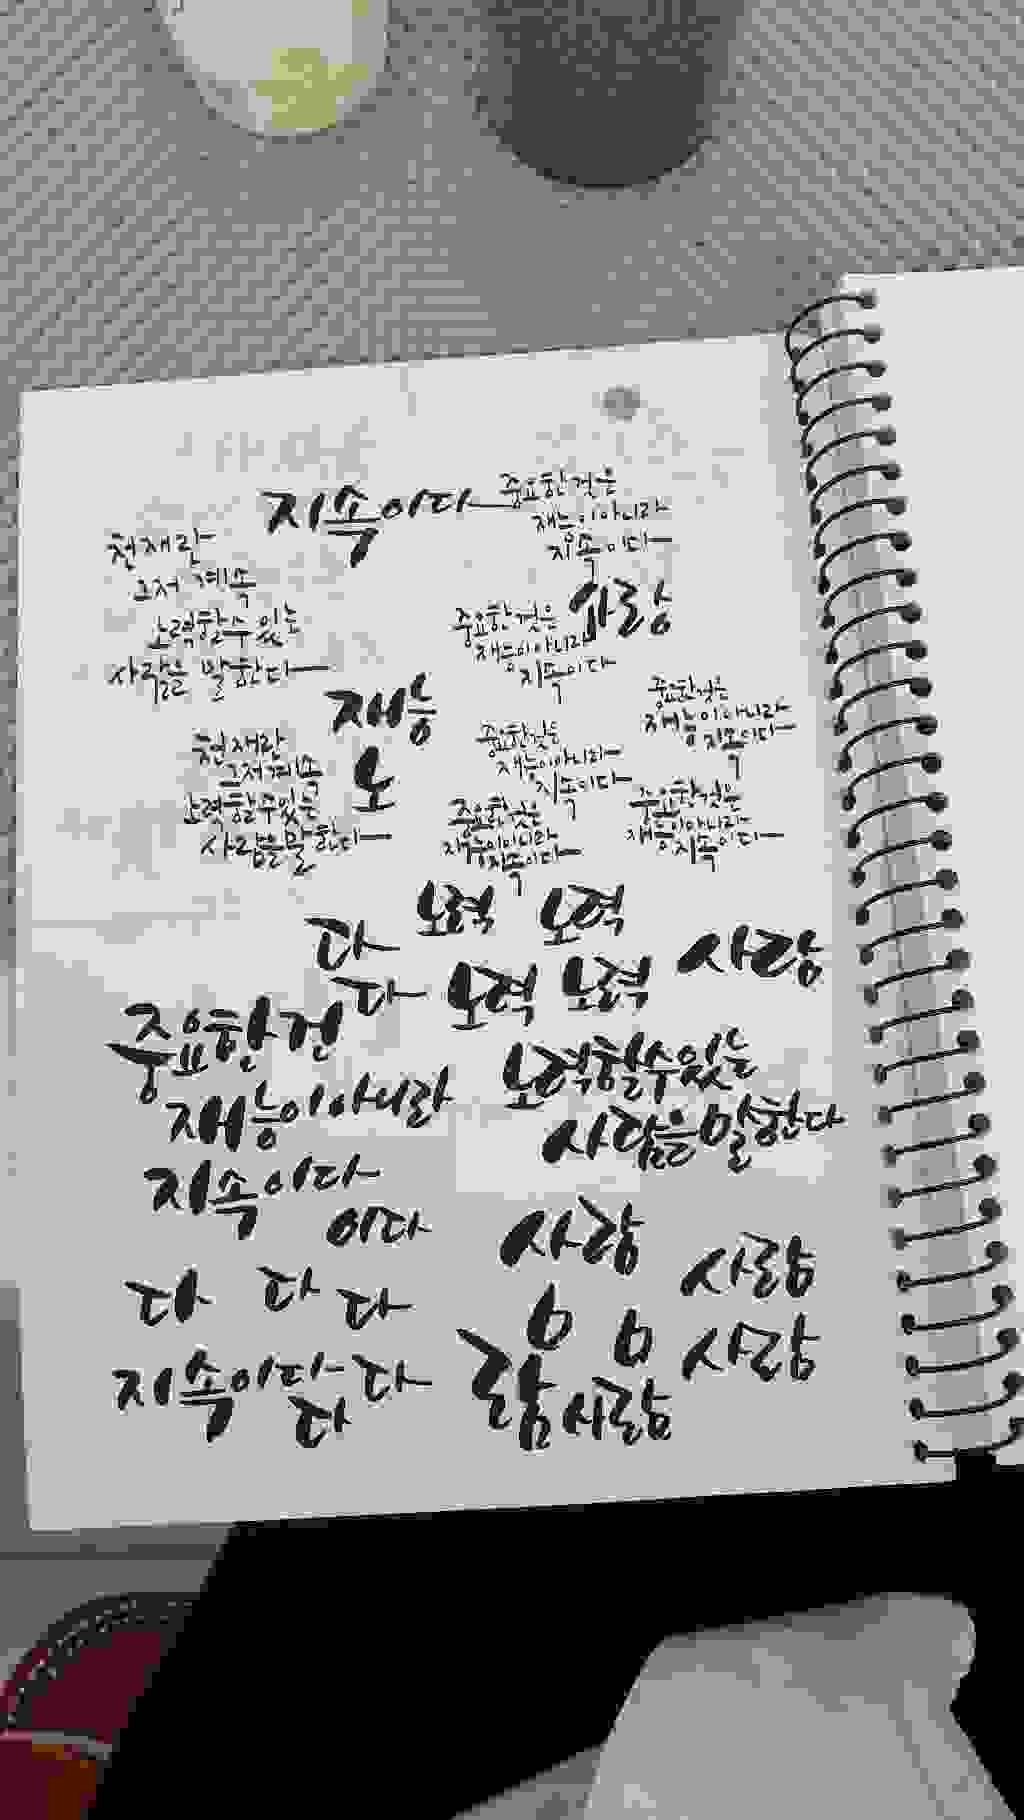 지속이다
중요한 것은
재능이 아니라
지속이다
천재란
그저 계속
노력할 수 있는
사람을 말한다
사람
중요한 것은
재능이 아니라
지속이다
재능
노
중요한 것은
재능이 아니라
지속이다
중요한 것은
재능이 아니라
지속이다
천재란
그저 계속
노력할 수 있는
사람을 말한다
중요한 것은
재능이 아니라
지속이다
중요한 것은
재능이 아니라
지속이다
노력 노력
다
다 노력 노력 사람
중요한 건
재능이 아니라
지속이다
이다
노력할 수 있는
사람을 말한다
사람
사람
다 다 다
ㅁ ㅁ 사람
지속이다 다
다
람 사람